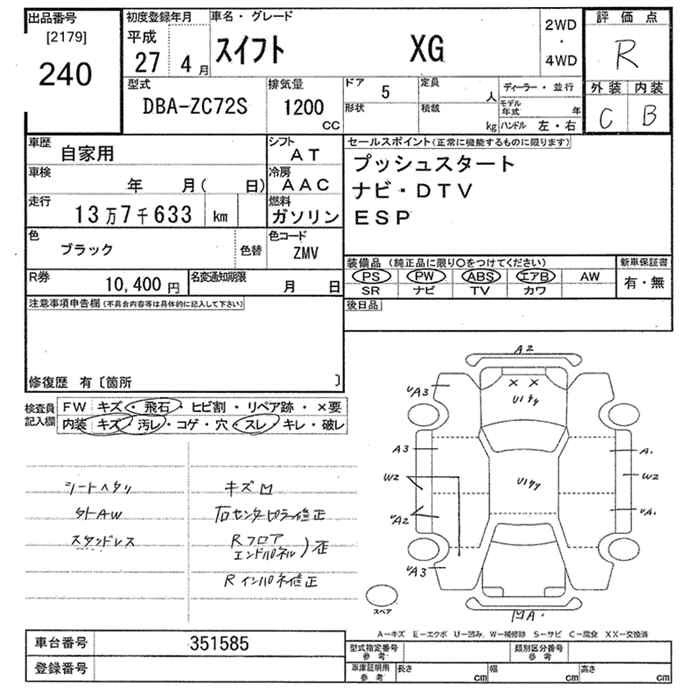 出品番号 初度登録年月 車名・グレード 評価点
[2179] 平成 スイフト XG 2WD・4WD R
240 27 4月
型式 排気量 ドア 5 定員 人 ディーラー・並行 外装 内装
DBA-ZC72S 1200 CC 形状 積載 kg モデル年式 年 C B
ハンドル 左・右
車歴 自家用 シフト AT セールスポイント(正常に機能するものに限ります)
車検 年 月( 日) 冷房 AAC プッシュスタート
走行 13万7千633 km 燃料 ガソリン ナビ・DTV
ESP
色 ブラック 色替 色コード ZMV
装備品 (純正品に限り○をつけてください) 新車保証書
PS PW ABS エアB AW 有・無
SR ナビ TV カワ
R券 10,400円 名変通知期限 月 日
注意事項申告欄(不具合内容等は具体的に記入して下さい) 後日品
修復歴 有〔箇所 〕
検査員記入欄 FW キズ・飛石・ヒビ割・リペア跡・×要
内装 キズ・汚レ・コゲ・穴・スレ・キレ・破レ
シートヘタリ キズ凹
外AW 右センターピラー修正
スタッドレス Rフロア エンドパネル)歪
Rインパネ修正
A2
UA3
× ×
U1 サビ
A3
A1
W2
W2
U1
UA2
UA1
UA3
凹A1
スペア
A-キズ E-エクボ U-凹み W-補修跡 S-サビ C-腐食 XX-交換済
車台番号 351585 型式指定番号 参考 類別区分番号 参考
登録番号 車庫証明用 参考 長さ cm 幅 cm 高さ cm